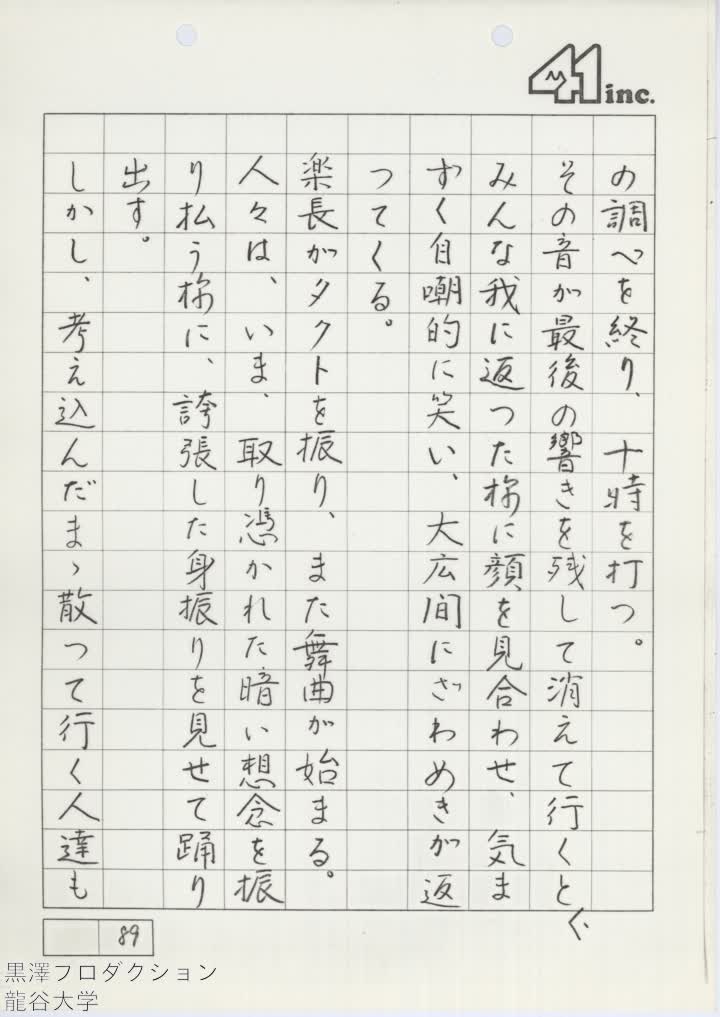 41 inc.
の調べを終り、十時を打つ。
その音が最後の響きを残して消えて行くと、
みんな我に返つた様に顔を見合わせ、気ま
ずく自嘲的に笑い、大広間にざわめきが返
つてくる。
楽長がタクトを振り、また舞曲が始まる。
人々は、いま、取り憑かれた暗い想念を振
り払う様に、誇張した身振りを見せて踊り
出す。
しかし、考え込んだまゝ散つて行く人達も
89
黒澤プロダクション
龍谷大学